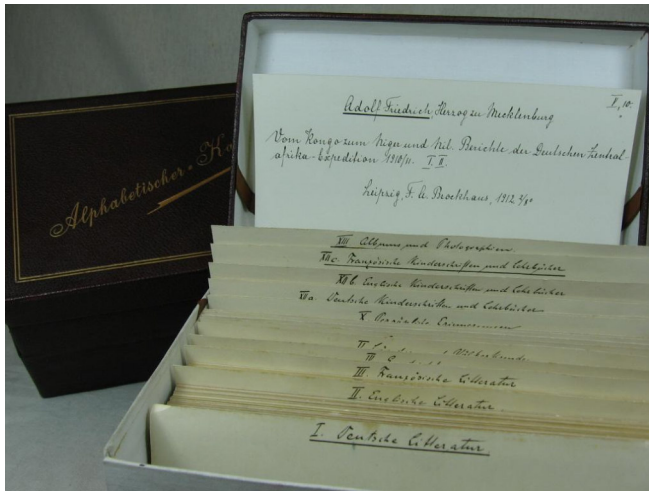 Alphabetischer
Adolf Friedrich, Herzog zu Mecklenburg
X, 10.
Vom Kongo zum Niger und Nil. Berichte der Deutschen Zentral-
afrika-Expedition 1910/11. I. II.
Leipzig, F. A. Brockhaus, 1912
XIII Albums und Photographien
XII c. Französische Kinderschriften und Lehrbücher
XII b Englische Kinderschriften und Lehrbücher
XII a. Deutsche Kinderschriften und Lehrbücher
X
Völkerkunde
III. Französische Litteratur
II. Englische Litteratur.
I. Deutsche Litteratur.